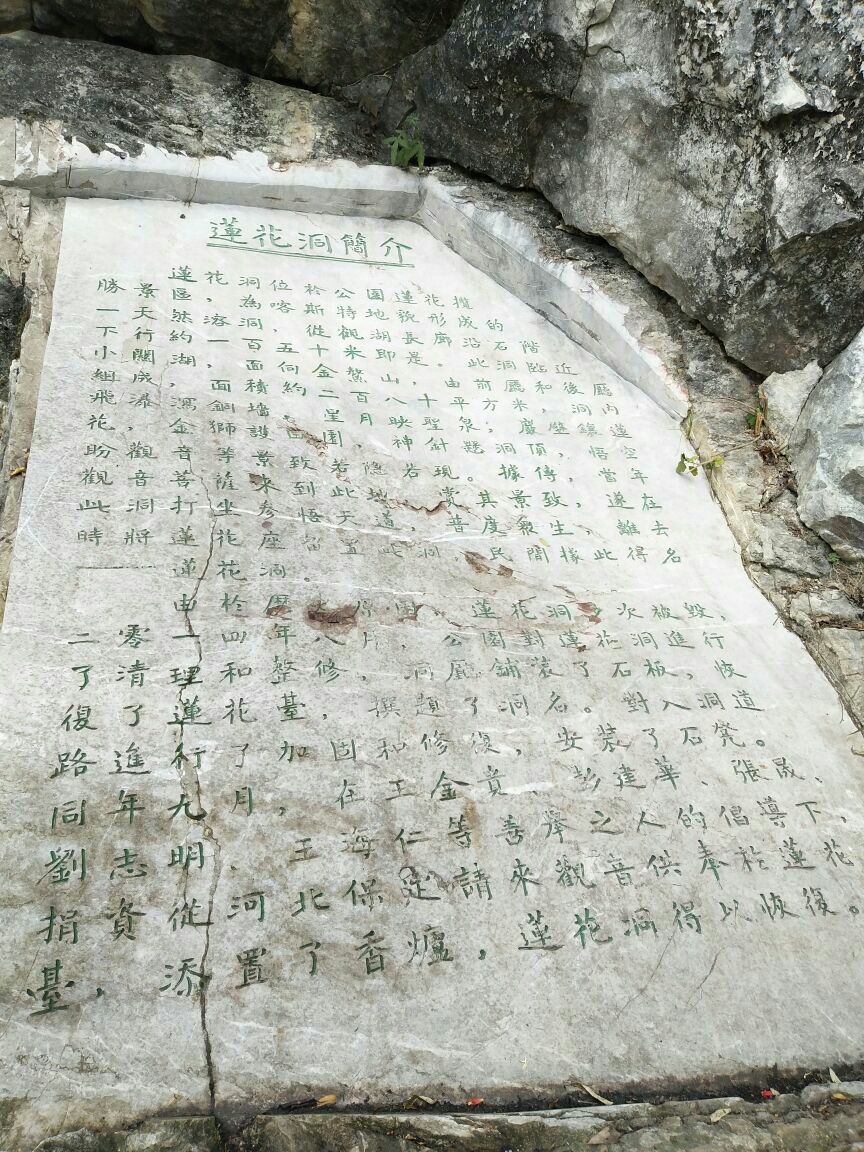 蓮花洞簡介
蓮花洞位於公園蓮花攬
勝景區,為喀斯特地貌形成的
一天然溶洞,從觀湖長廊沿石階
下行約一百五十米即是。此洞臨近
小關湖,面向金鰲山,由前廳和後廳
組成,面積約二百八十平方米,洞內
飛瀑瀉銅墻,星月映聖泉;巖壁鑲蓮
花,金獅護田園,神針懸洞頂,悟空
盼觀音等景致若隐若現。據傳,當年
觀音菩薩來到此地,賞其景致,遂在
此洞打坐參悟天道,普度衆生,離去
時將蓮花座留置此洞,民間據此得名
——蓮花洞。
由於歷 原因,蓮花洞多次被毀,
二零一四年八月,公園對蓮花洞進行
了清理和整修,洞廳鋪裝了石板,恢
復了蓮花臺,撰題了洞名。對入洞道
路進行了加固和修復,安裝了石凳。
同年九月,在王金貴、彭建華、張晟、
劉志明、王海仁等善舉之人的倡導下,
捐資從河北保定請來觀音供奉於蓮花
臺,添置了香爐,蓮花洞得以恢復。